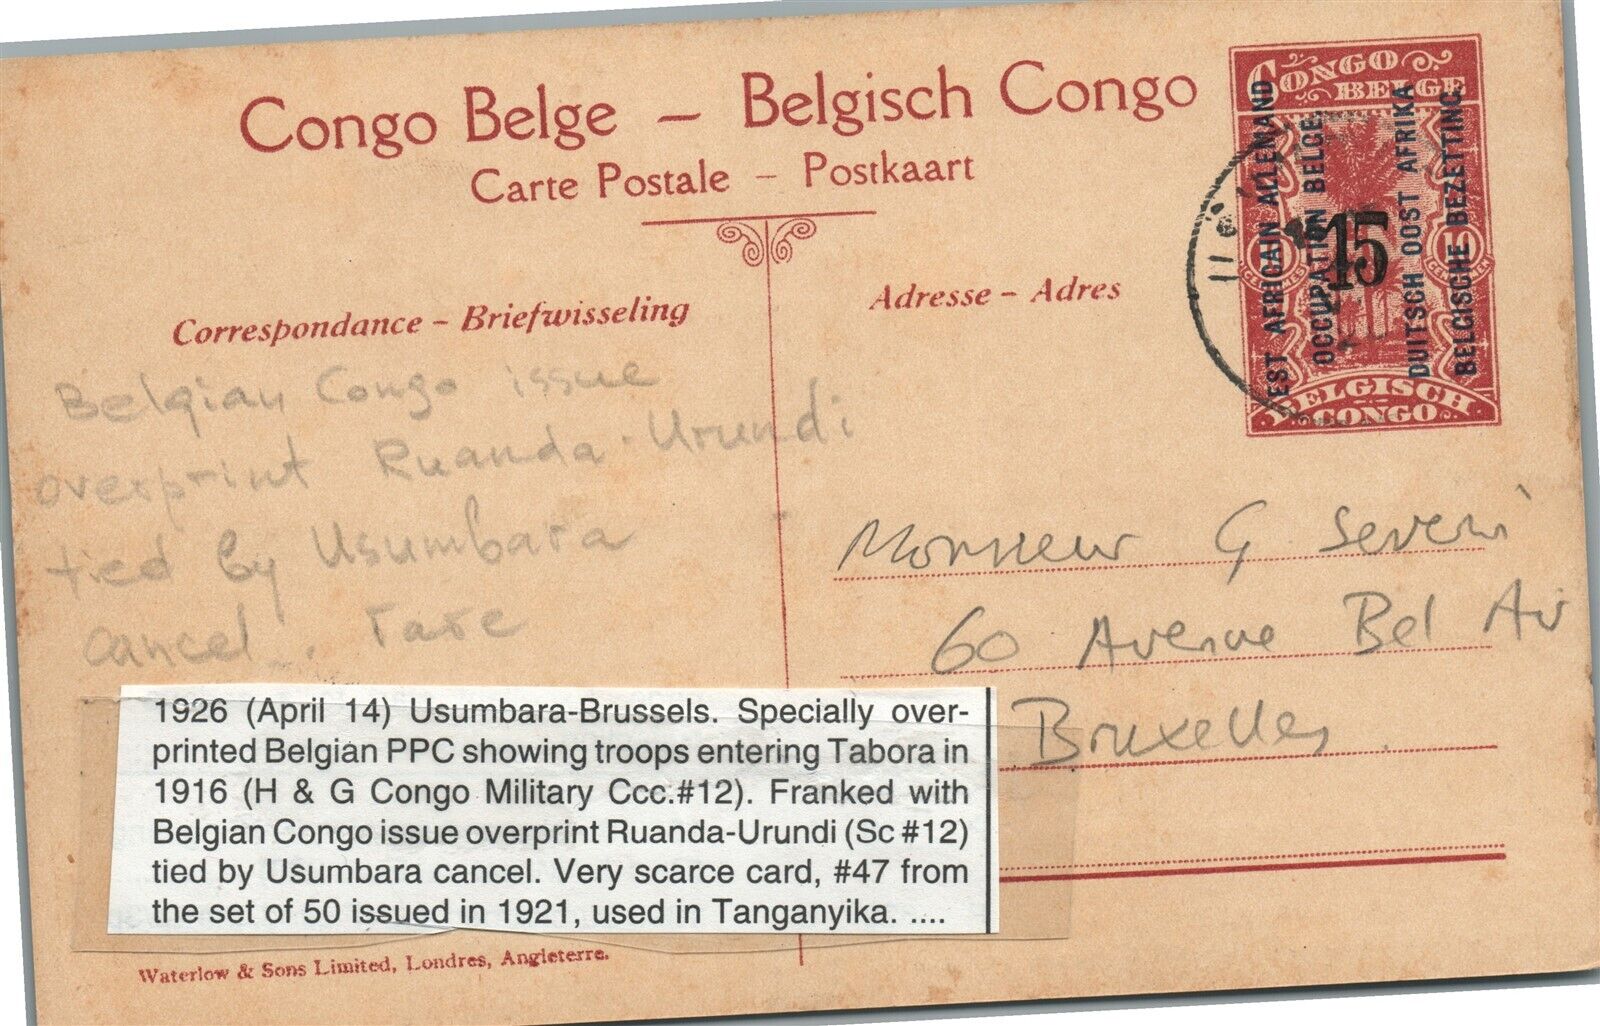 Congo Belge – Belgisch Congo
Carte Postale – Postkaart
CONGO
BELGE
EST AFRICAIN ALLEMAND
OCCUPATION BELGE.
15
DUITSCH OOST AFRIKA
BELGISCHE BEZETTING.
BELGISCH
CONGO
Correspondance – Briefwisseling
Adresse – Adres
Belgian Congo issue
overprint Ruanda-Urundi
tied by Usumbara
cancel. rare
Monsieur G Severin
60 Avenue Bel Air
Bruxelles
1926 (April 14) Usumbara-Brussels. Specially over-
printed Belgian PPC showing troops entering Tabora in
1916 (H & G Congo Military Ccc.#12). Franked with
Belgian Congo issue overprint Ruanda-Urundi (Sc #12)
tied by Usumbara cancel. Very scarce card, #47 from
the set of 50 issued in 1921, used in Tanganyika. ....
Waterlow & Sons Limited, Londres, Angleterre.